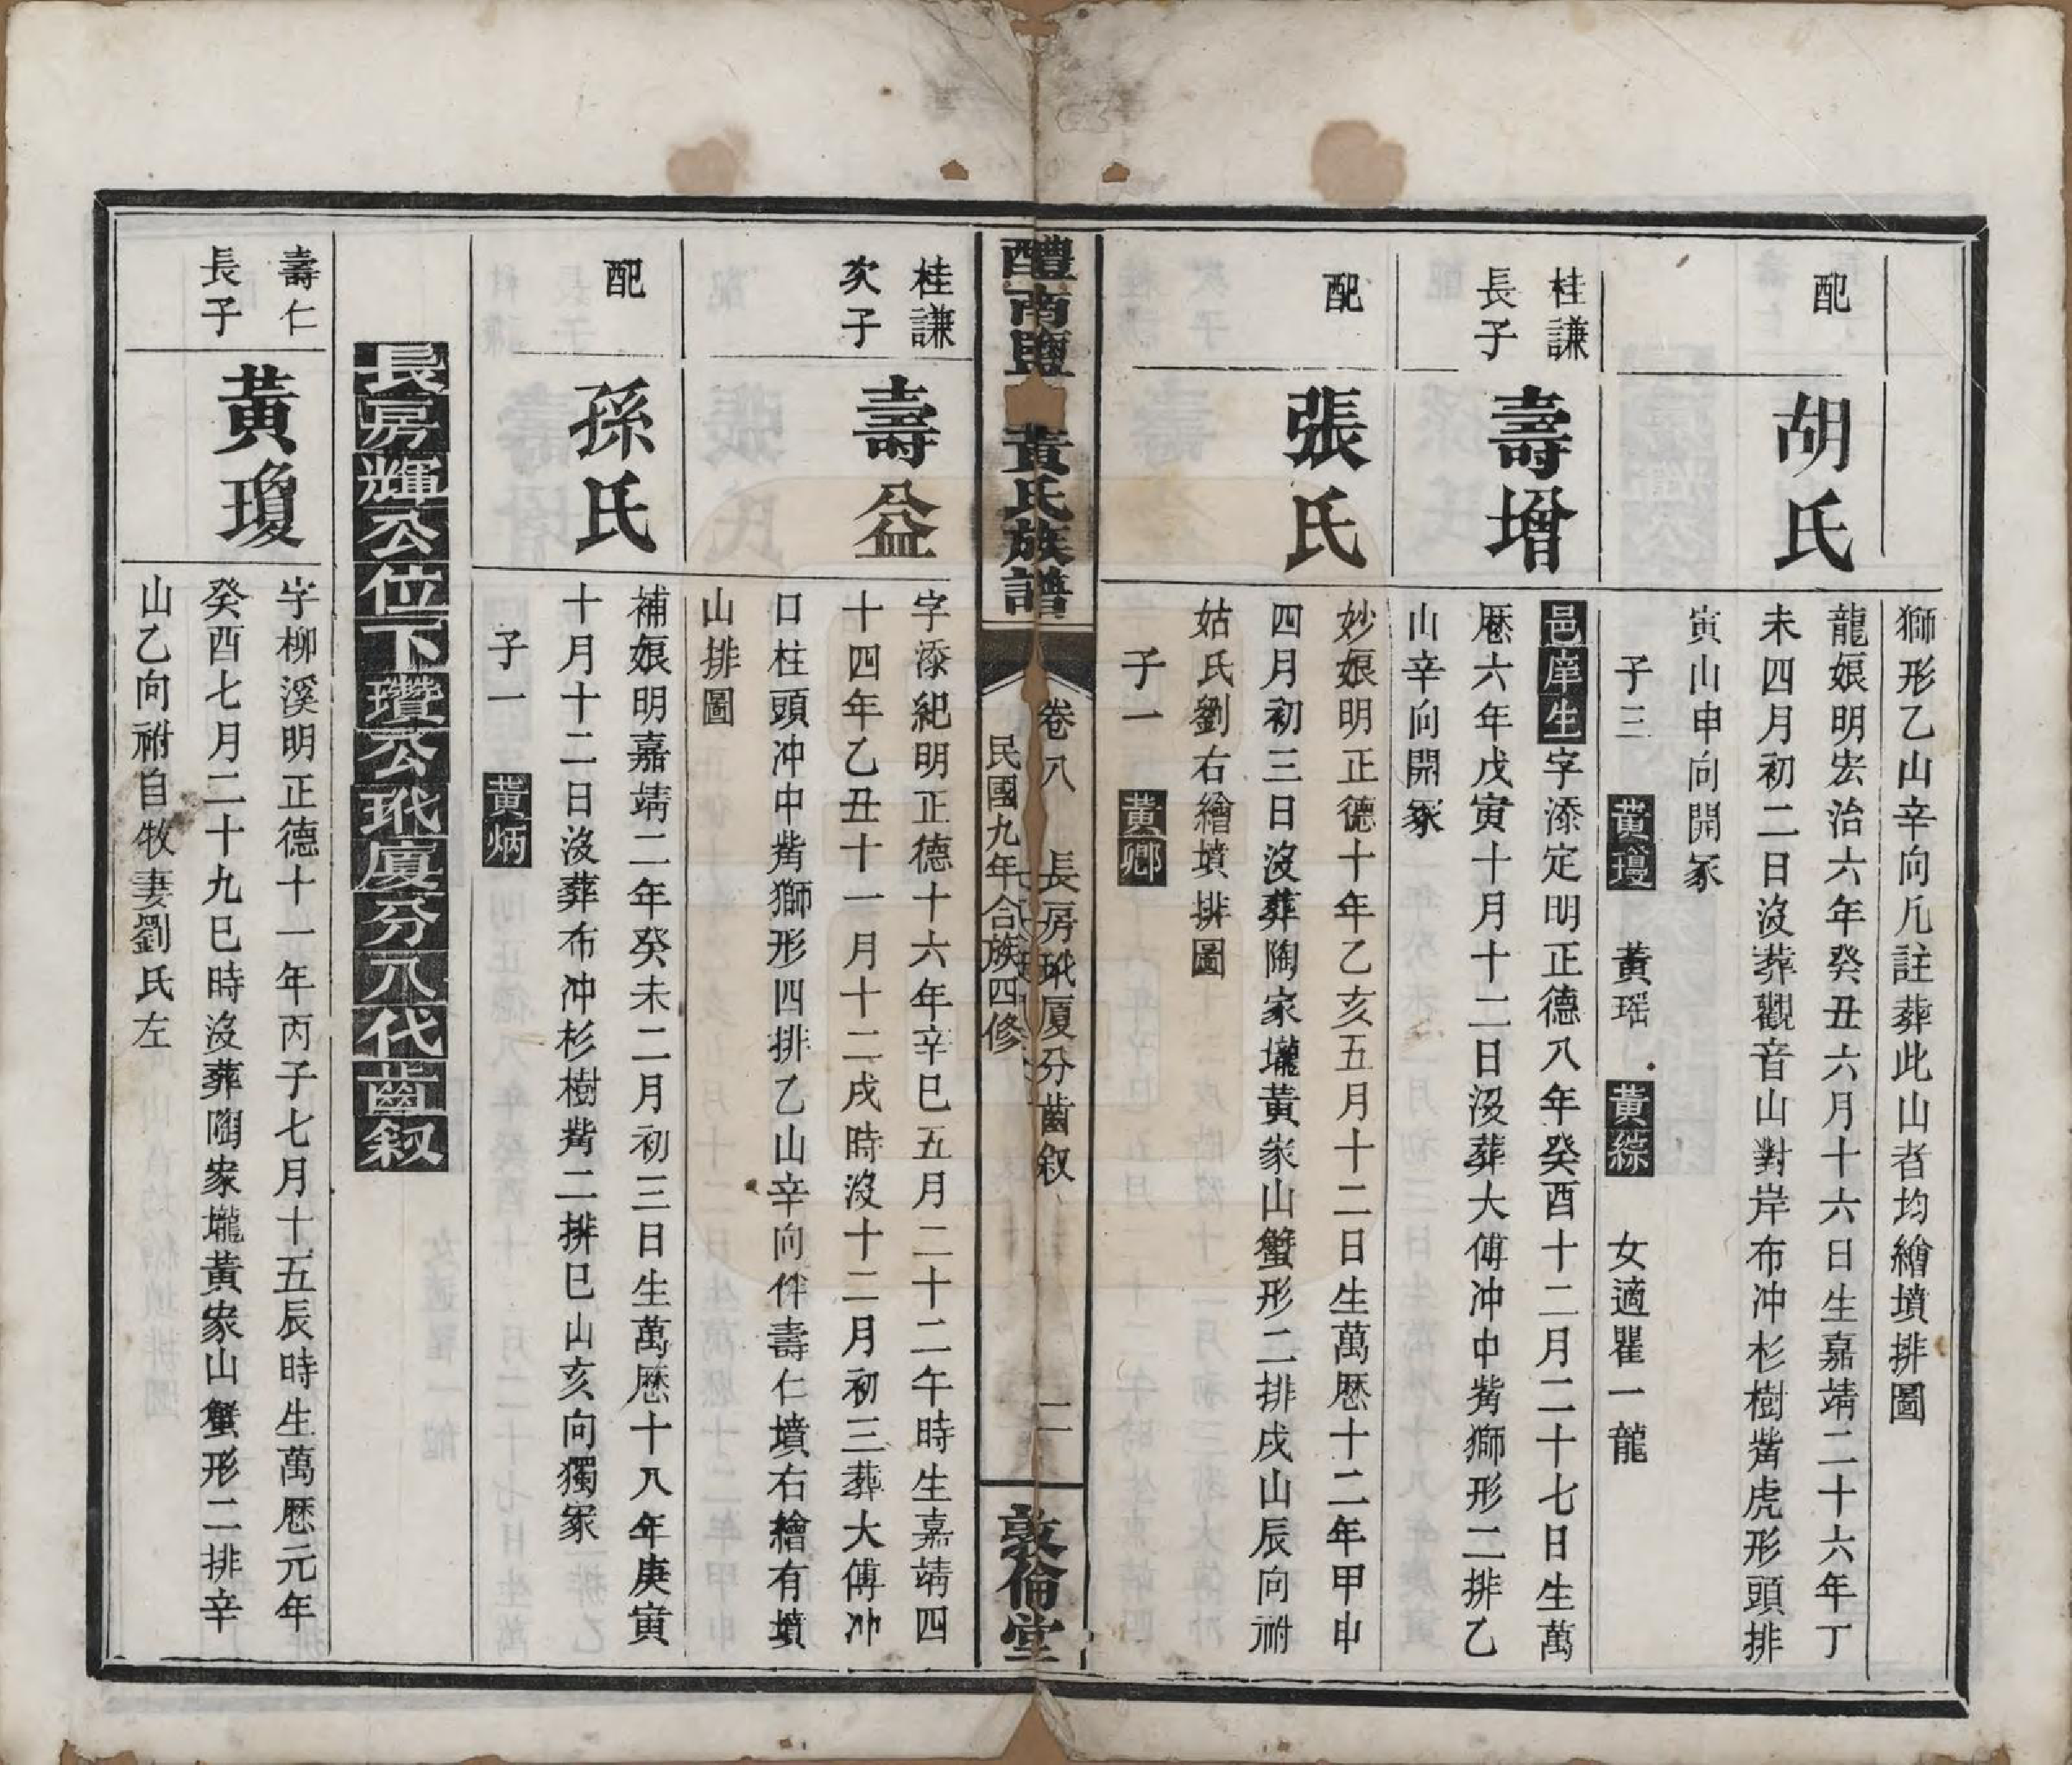 獅形乙山辛向凡註葬此山者均繪墳排圖
配
胡氏
龍娘明宏治六年癸丑六月十六日生嘉靖二十六年丁
未四月初二日沒葬觀音山對岸布冲杉樹嘴虎形頭排
寅山申向開冢
子三 黃瓊 黃瑶 黃綜 女適瞿一龍
桂謙
長子
壽增
邑庠生字添定明正德八年癸酉十二月二十七日生萬
厯六年戊寅十月十二日沒葬大傅冲中嘴獅形二排乙
山辛向開冢
配
張氏
妙娘明正德十年乙亥五月十二日生萬厯十二年甲申
四月初三日沒葬陶家壠黃家山蟹形二排戌山辰向祔
姑氏劉右繪墳排圖
子一 黃卿
醴南鹽 黃氏族譜
卷八 長房玳厦分齒叙 二
民國九年合族四修
敦倫堂
桂謙
次子
壽益
字添紀明正德十六年辛巳五月二十二午時生嘉靖四
十四年乙丑十一月十二戌時沒十二月初三葬大傅冲
口柱頭冲中嘴獅形四排乙山辛向伴壽仁墳右繪有墳
山排圖
配
孫氏
補娘明嘉靖二年癸未二月初三日生萬厯十八年庚寅
十月十二日沒葬布冲杉樹嘴二排巳山亥向獨冢
子一 黃炳
長房輝公位下瓚公玳廈分八代齒叙
壽仁
長子
黃瓊
字柳溪明正德十一年丙子七月十五辰時生萬厯元年
癸酉七月二十九巳時沒葬陶家壠黃家山蟹形二排辛
山乙向祔自牧妻劉氏左